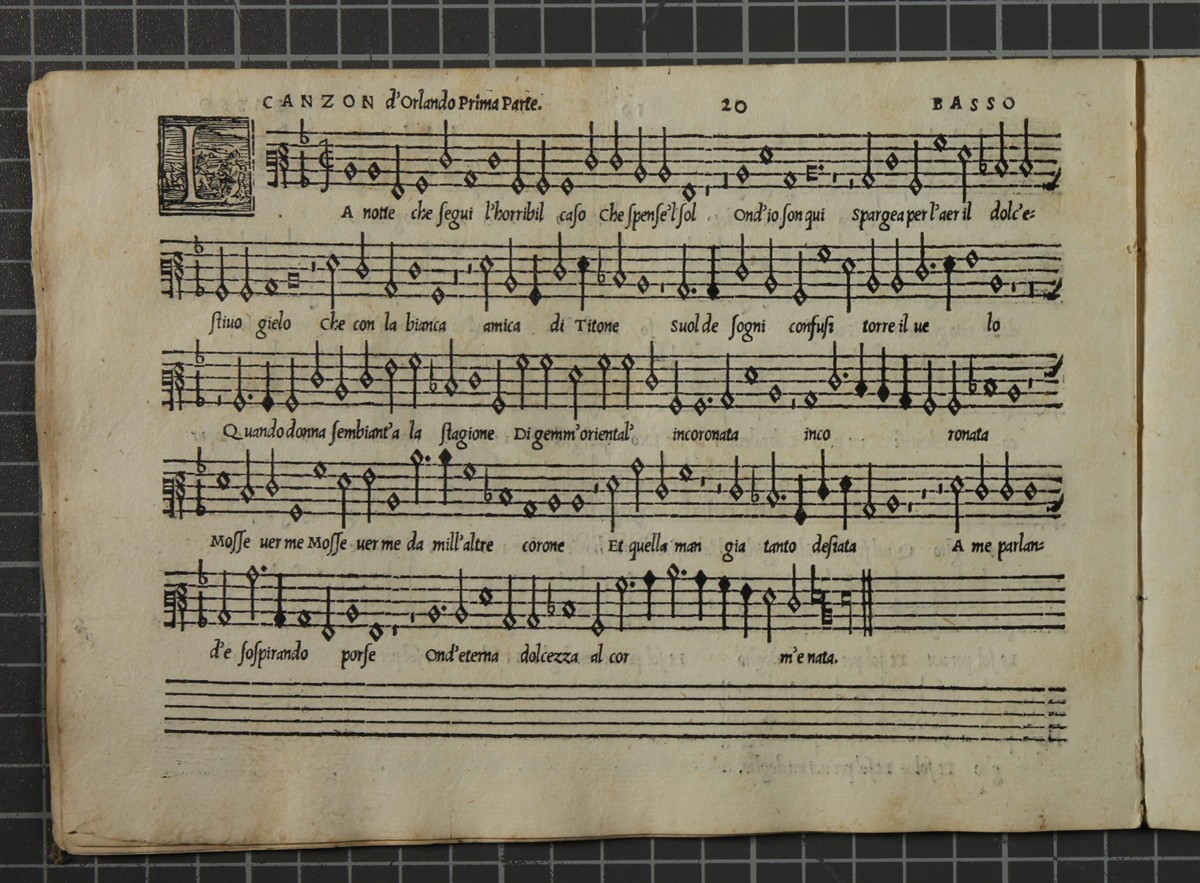 CANZON d'Orlando Prima Parte. 20 BASSO
L
A notte che segui l'horribil caso Che spense'l sol Ond'io son qui Spargea per l'aer il dolc'e-
stiuo gielo Che con la bianca amica di Titone Suol de sogni confusi torre il ue lo
Quando donna sembiant'a la stagione Di gemm'oriental' incoronata inco ronata
Mosse uer me Mosse uer me da mill'altre corone Et quella man gia tanto desiata A me parlan-
d'e sospirando porse Ond'eterna dolcezza al cor m'e nata.